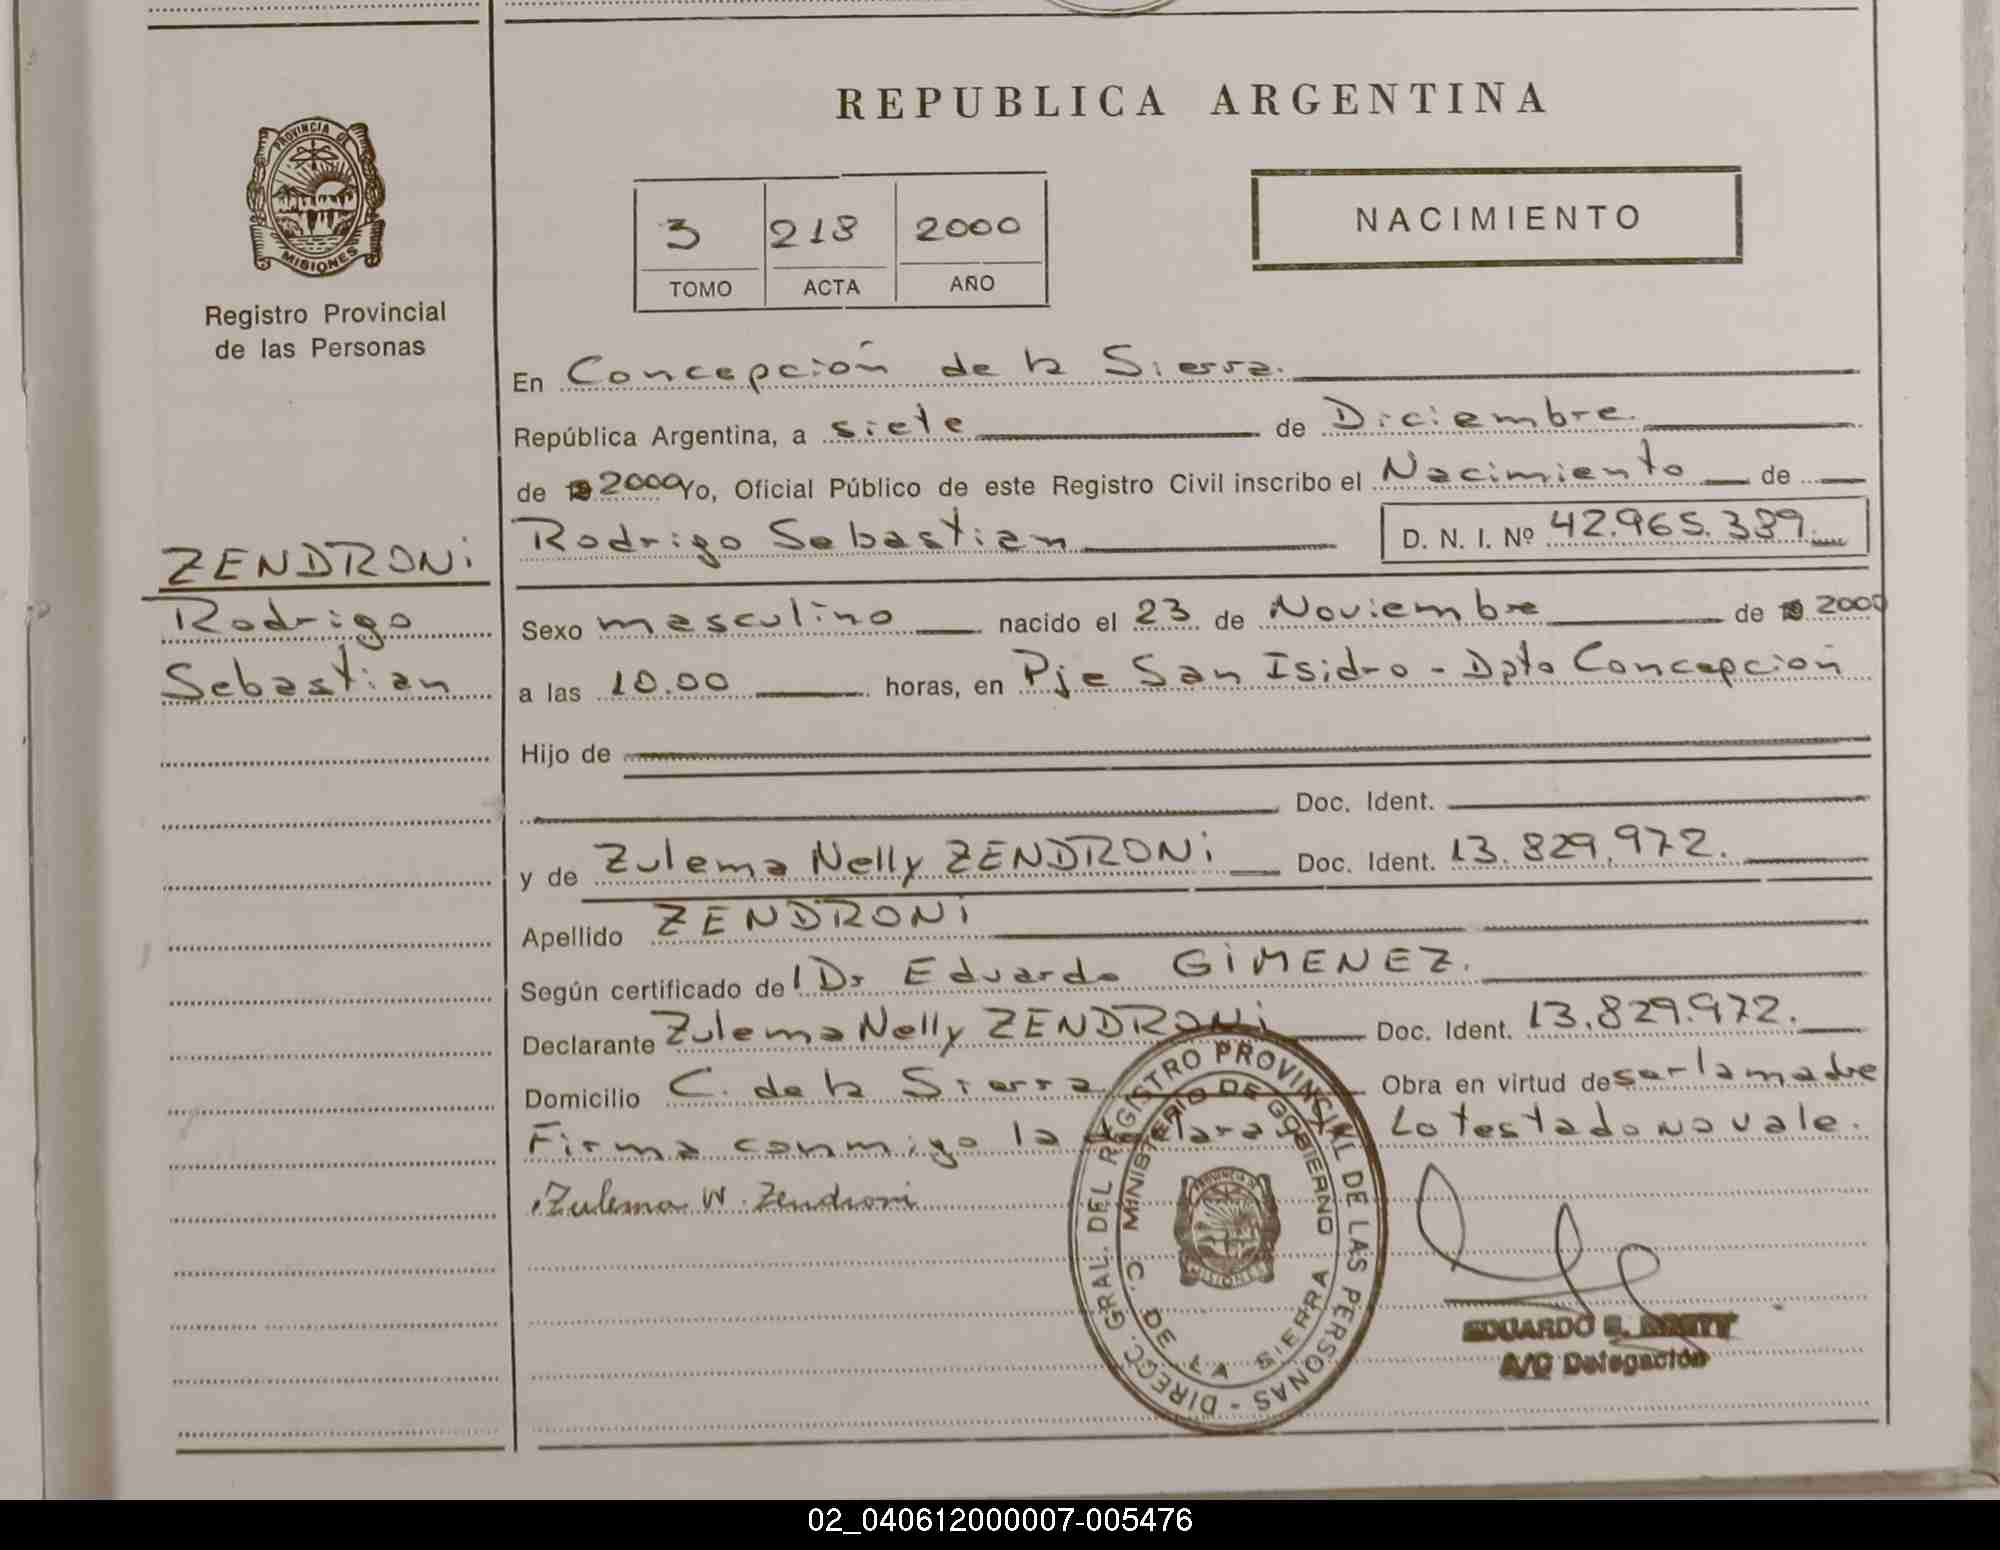 REPUBLICA ARGENTINA
PROVINCIA DE
MISIONES
Registro Provincial
de las Personas
3 218 2000
TOMO ACTA AÑO
NACIMIENTO
En Concepción de la Sierra.
República Argentina, a siete de Diciembre.
de 19 2000 Yo, Oficial Público de este Registro Civil inscribo el Nacimiento de
Rodrigo Sebastian D. N. I. Nº 42.965.389.
ZENDRONi
Rodrigo
Sebastian
Sexo masculino nacido el 23 de Noviembre de 19 2000
a las 10.00 horas, en Pje San Isidro - Dpto Concepción
Hijo de
Doc. Ident.
y de Zulema Nelly ZENDRONi Doc. Ident. 13.829.972.
Apellido ZENDRONi
Según certificado del Dr Eduardo GiMENEZ.
Declarante Zulema Nelly ZENDRONi Doc. Ident. 13.829.972.
Domicilio C. de la Sierra Obra en virtud de ser la madre
Firma conmigo la declarante Lo testado no vale.
Zulema N. Zendroni
DIRECC. GRAL. DEL REGISTRO PROVINCIAL DE LAS PERSONAS -
MINISTERIO DE GOBIERNO
C. DE LA SIERRA
PROVINCIA DE
MISIONES
EDUARDO E.
A/C Delegación
02_040612000007-005476